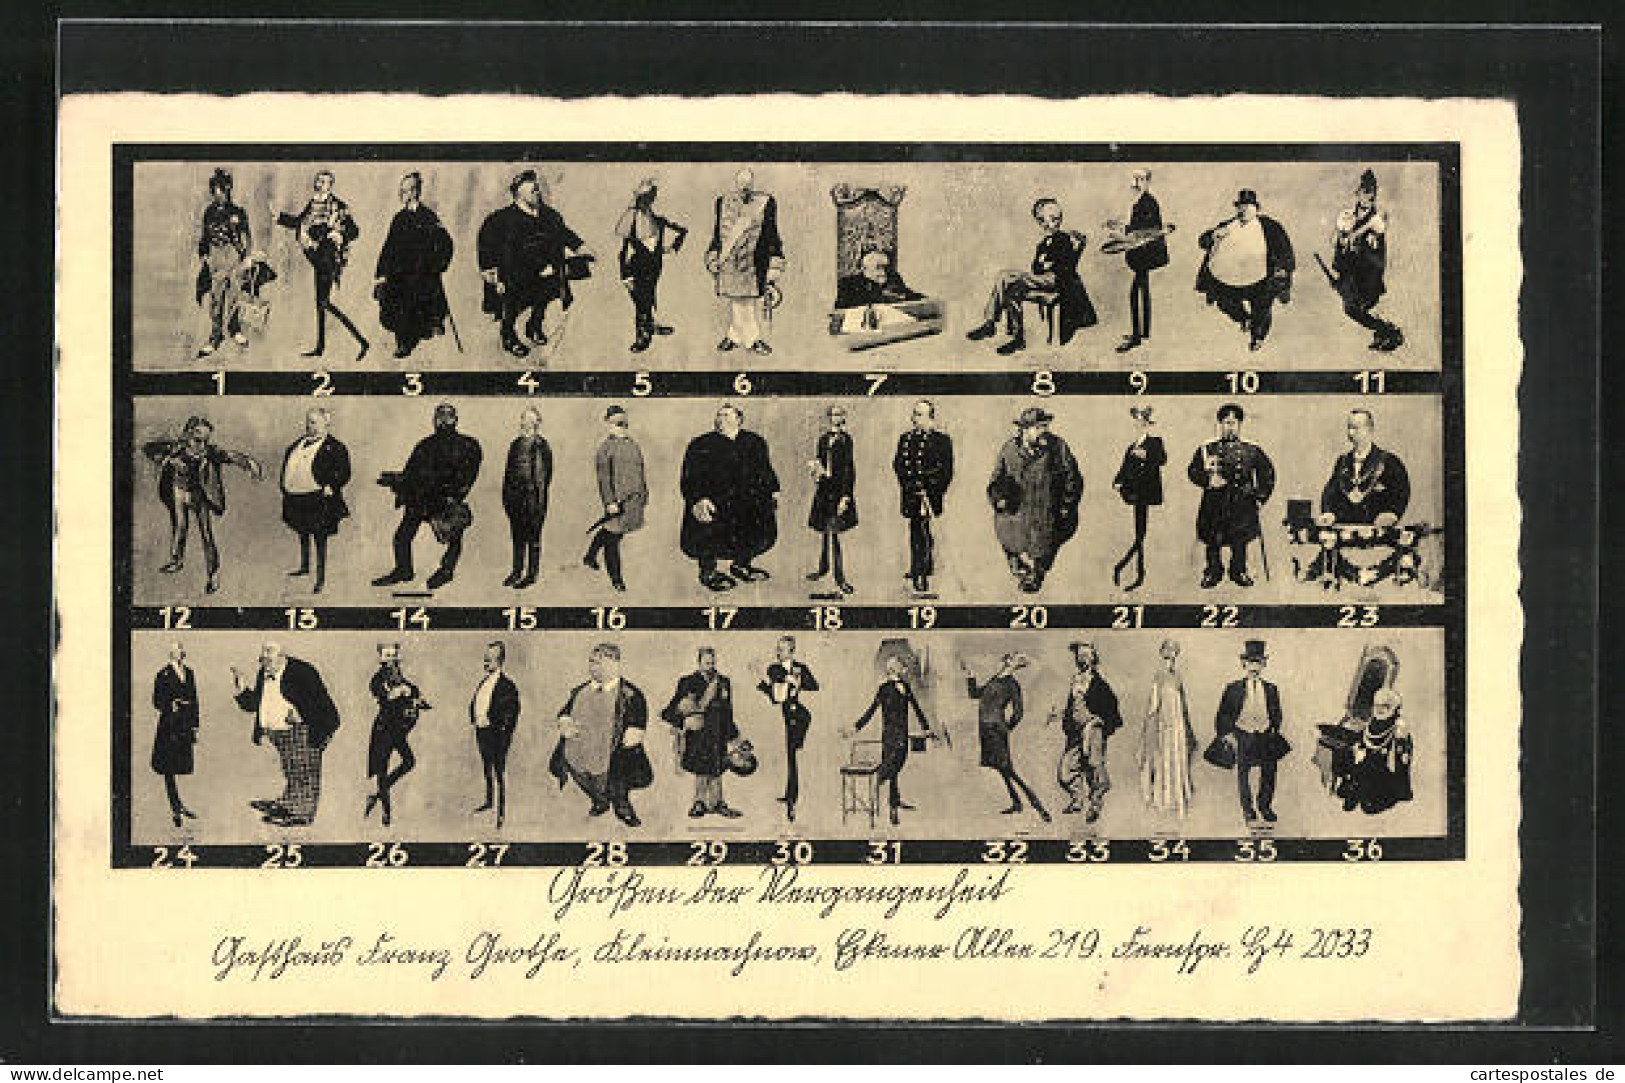 1 2 3 4 5 6 7 8 9 10 11
12 13 14 15 16 17 18 19 20 21 22 23
24 25 26 27 28 29 30 31 32 33 34 35 36
Größen der Vergangenheit
Gasthaus Franz Grothe, Kleinmachnow, Eckener Allee 219. Fernspr. H4 2033
cartespostales de